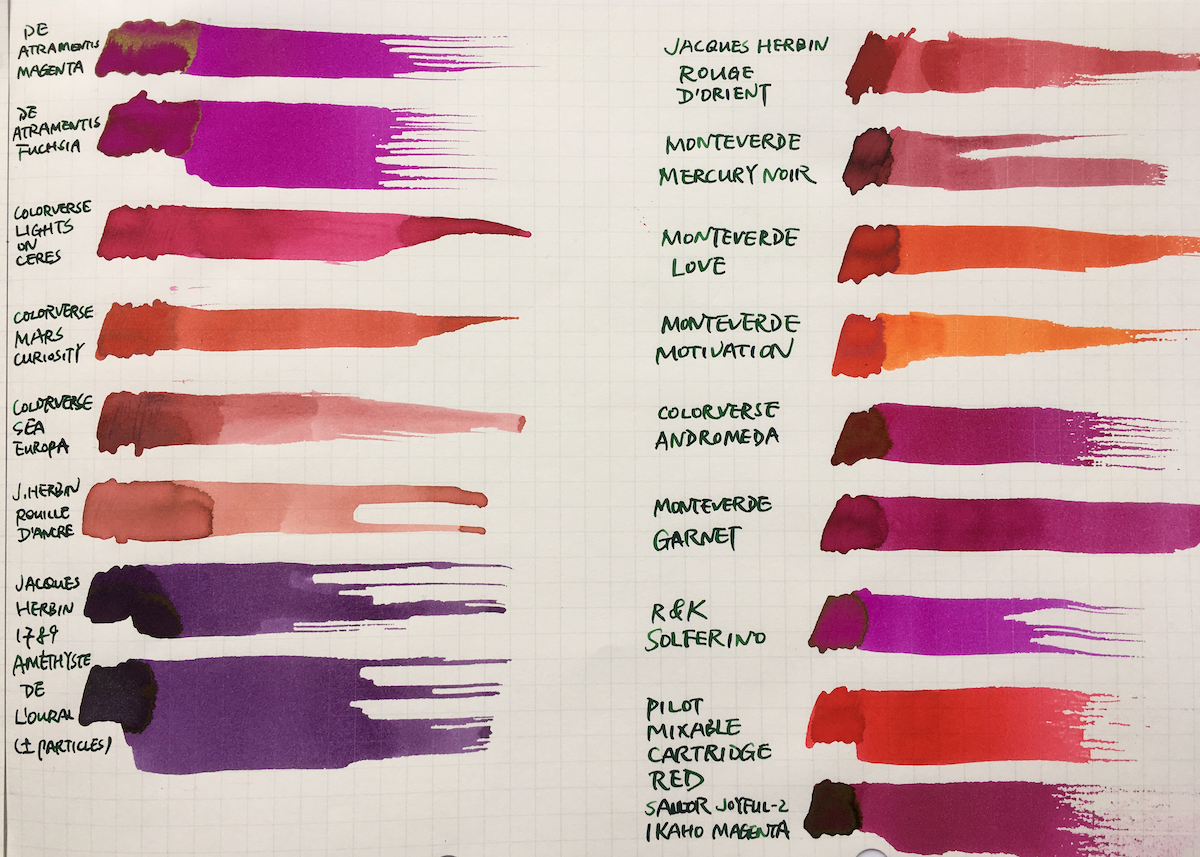 DE
ATRAMENTIS
MAGENTA
DE
ATRAMENTIS
FUCHSIA
COLORVERSE
LIGHTS
ON
CERES
COLORVERSE
MARS
CURIOSITY
COLORVERSE
SEA
EUROPA
J. HERBIN
ROUILLE
D'ANCRE
JACQUES
HERBIN
1789
AMÉTHYSTE
DE
L'OURAL
(± PARTICLES)
JACQUES HERBIN
ROUGE
D'ORIENT
MONTEVERDE
MERCURY NOIR
MONTEVERDE
LOVE
MONTEVERDE
MOTIVATION
COLORVERSE
ANDROMEDA
MONTEVERDE
GARNET
R&K
SOLFERINO
PILOT
MIXABLE
CARTRIDGE
RED
SAILOR JOYFUL-2
IKAHO MAGENTA